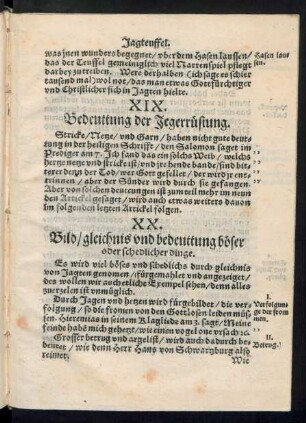 Jagteuffel.
was jnen wunders begegnet/ vber dem Hasen lauffen/
das der Teuffel gemeiniglich viel Narrenspiel pflegt
darbey zu treiben. Were derhalben (ich sage es schier
tausend mal) wol not/ das man etwas Gottfürchtiger
vnd Christlicher sich in Jagten hielte.
Hasen lauffen.
XIX.
Bedeuttung der Jegerrüstung.
Stricke/ Netze/ vnd Garn/ haben nicht gute deuttung
in der heiligen Schrifft/ den Salomon saget im
Prediger am 7. Ich fand das ein solchs Weib/ welchs
hertz netze vnd stricke ist/ vnd jre hende bande/ sind bitterer
denn der Tod/ wer Gott gefellet/ der wird jr entrinnen/
aber der Sünder wird durch sie gefangen.
Aber von solchen deutungen ist zum teil mehr im neunden
Artickel gesaget/ wird auch etwas weiters danon
im folgenden letzten Artickel folgen.
XX.
Bild/ gleichnis vnd bedeuttung böser
oder schedlicher dinge.
Es wird viel böses vnd schedlichs durch gleichnis
von Jagten genomen/ fürgemahlet vnd angezeiget/
des wollen wir auch etliche Exempel sehen/ denn alles
zu erzelen ist vnmüglich.
Durch Jagen vnd hetzen wird fürgebildet/ die verfolgung/
so die fromen von den Gottlosen leiden müssen.
Hieremias in seinem Klagliede am 3. saget/ Meine
feinde habē mich gehetzt/ wie einen vogel one vrsach/ ꝛc.
I.
Verfolgunge
der frommen.
Grosser betrug vnd argelist/ wird auch dadurch bedeutet/
wie denn Herr Hans von Schwartzburg also
reimet.
II.
Betrog.
Wie